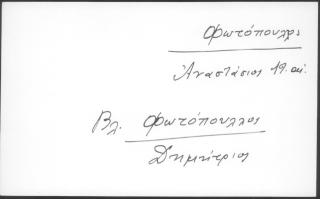 Φωτόπουλος
Ἀναστάσιος 19. αἰ.
Βλ. Φωτόπουλλος
Δημήτριος